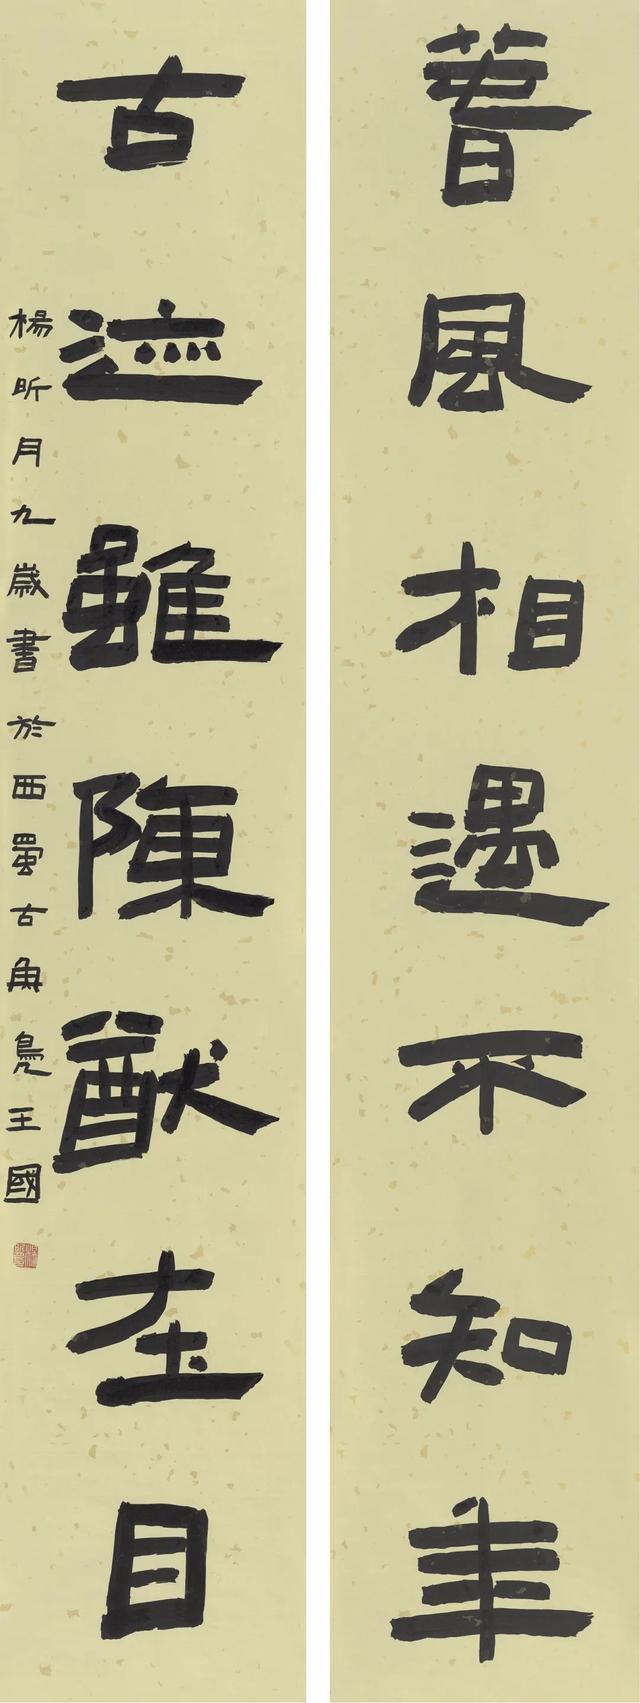 春風相遇不知年
古迹雖陳猶在目
楊昕月九歲書於西蜀古魚鳧王國